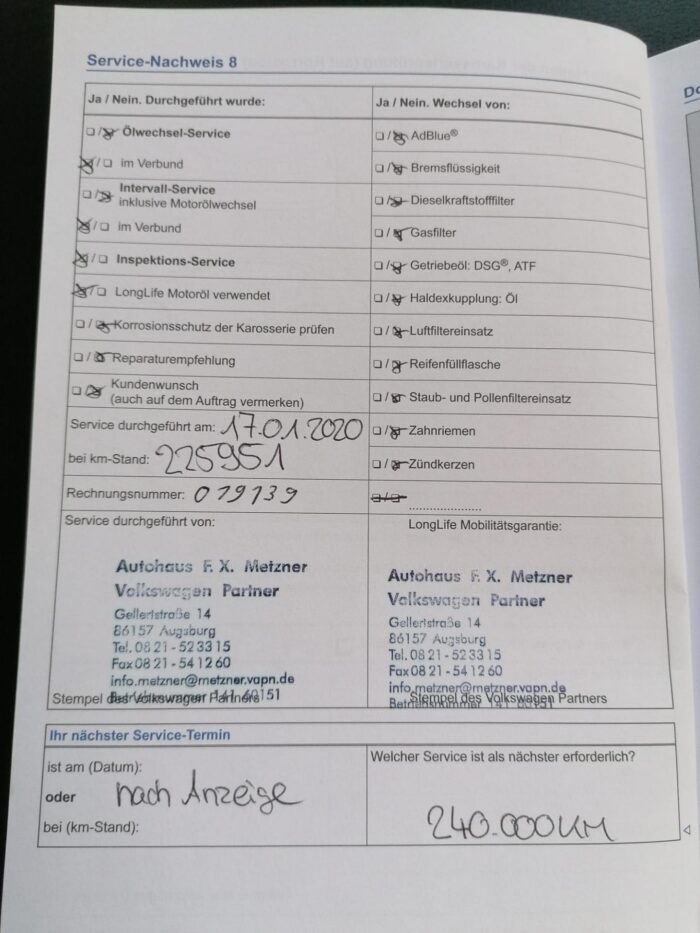 Service-Nachweis 8
Do
Ja / Nein. Durchgeführt wurde:
Ölwechsel-Service
im Verbund
Intervall-Service
inklusive Motorölwechsel
im Verbund
Inspektions-Service
LongLife Motoröl verwendet
Korrosionsschutz der Karosserie prüfen
Reparaturempfehlung
Kundenwunsch
(auch auf dem Auftrag vermerken)
Service durchgeführt am: 17.01.2020
bei km-Stand: 225951
Rechnungsnummer: 019139
Service durchgeführt von:
Autohaus F. X. Metzner
Volkswagen Partner
Gellertstraße 14
86157 Augsburg
Tel. 08 21 - 52 33 15
Fax 08 21 - 54 12 60
info.metzner@metzner.vapn.de
Stempel des Volkswagen Partners
Ja / Nein. Wechsel von:
AdBlue®
Bremsflüssigkeit
Dieselkraftstofffilter
Gasfilter
Getriebeöl: DSG®, ATF
Haldexkupplung: Öl
Luftfiltereinsatz
Reifenfüllflasche
Staub- und Pollenfiltereinsatz
Zahnriemen
Zündkerzen
LongLife Mobilitätsgarantie:
Autohaus F. X. Metzner
Volkswagen Partner
Gellertstraße 14
86157 Augsburg
Tel. 08 21 - 52 33 15
Fax 08 21 - 54 12 60
info.metzner@metzner.vapn.de
Stempel des Volkswagen Partners
Ihr nächster Service-Termin
ist am (Datum):
oder nach Anzeige
bei (km-Stand):
Welcher Service ist als nächster erforderlich?
240.000KM